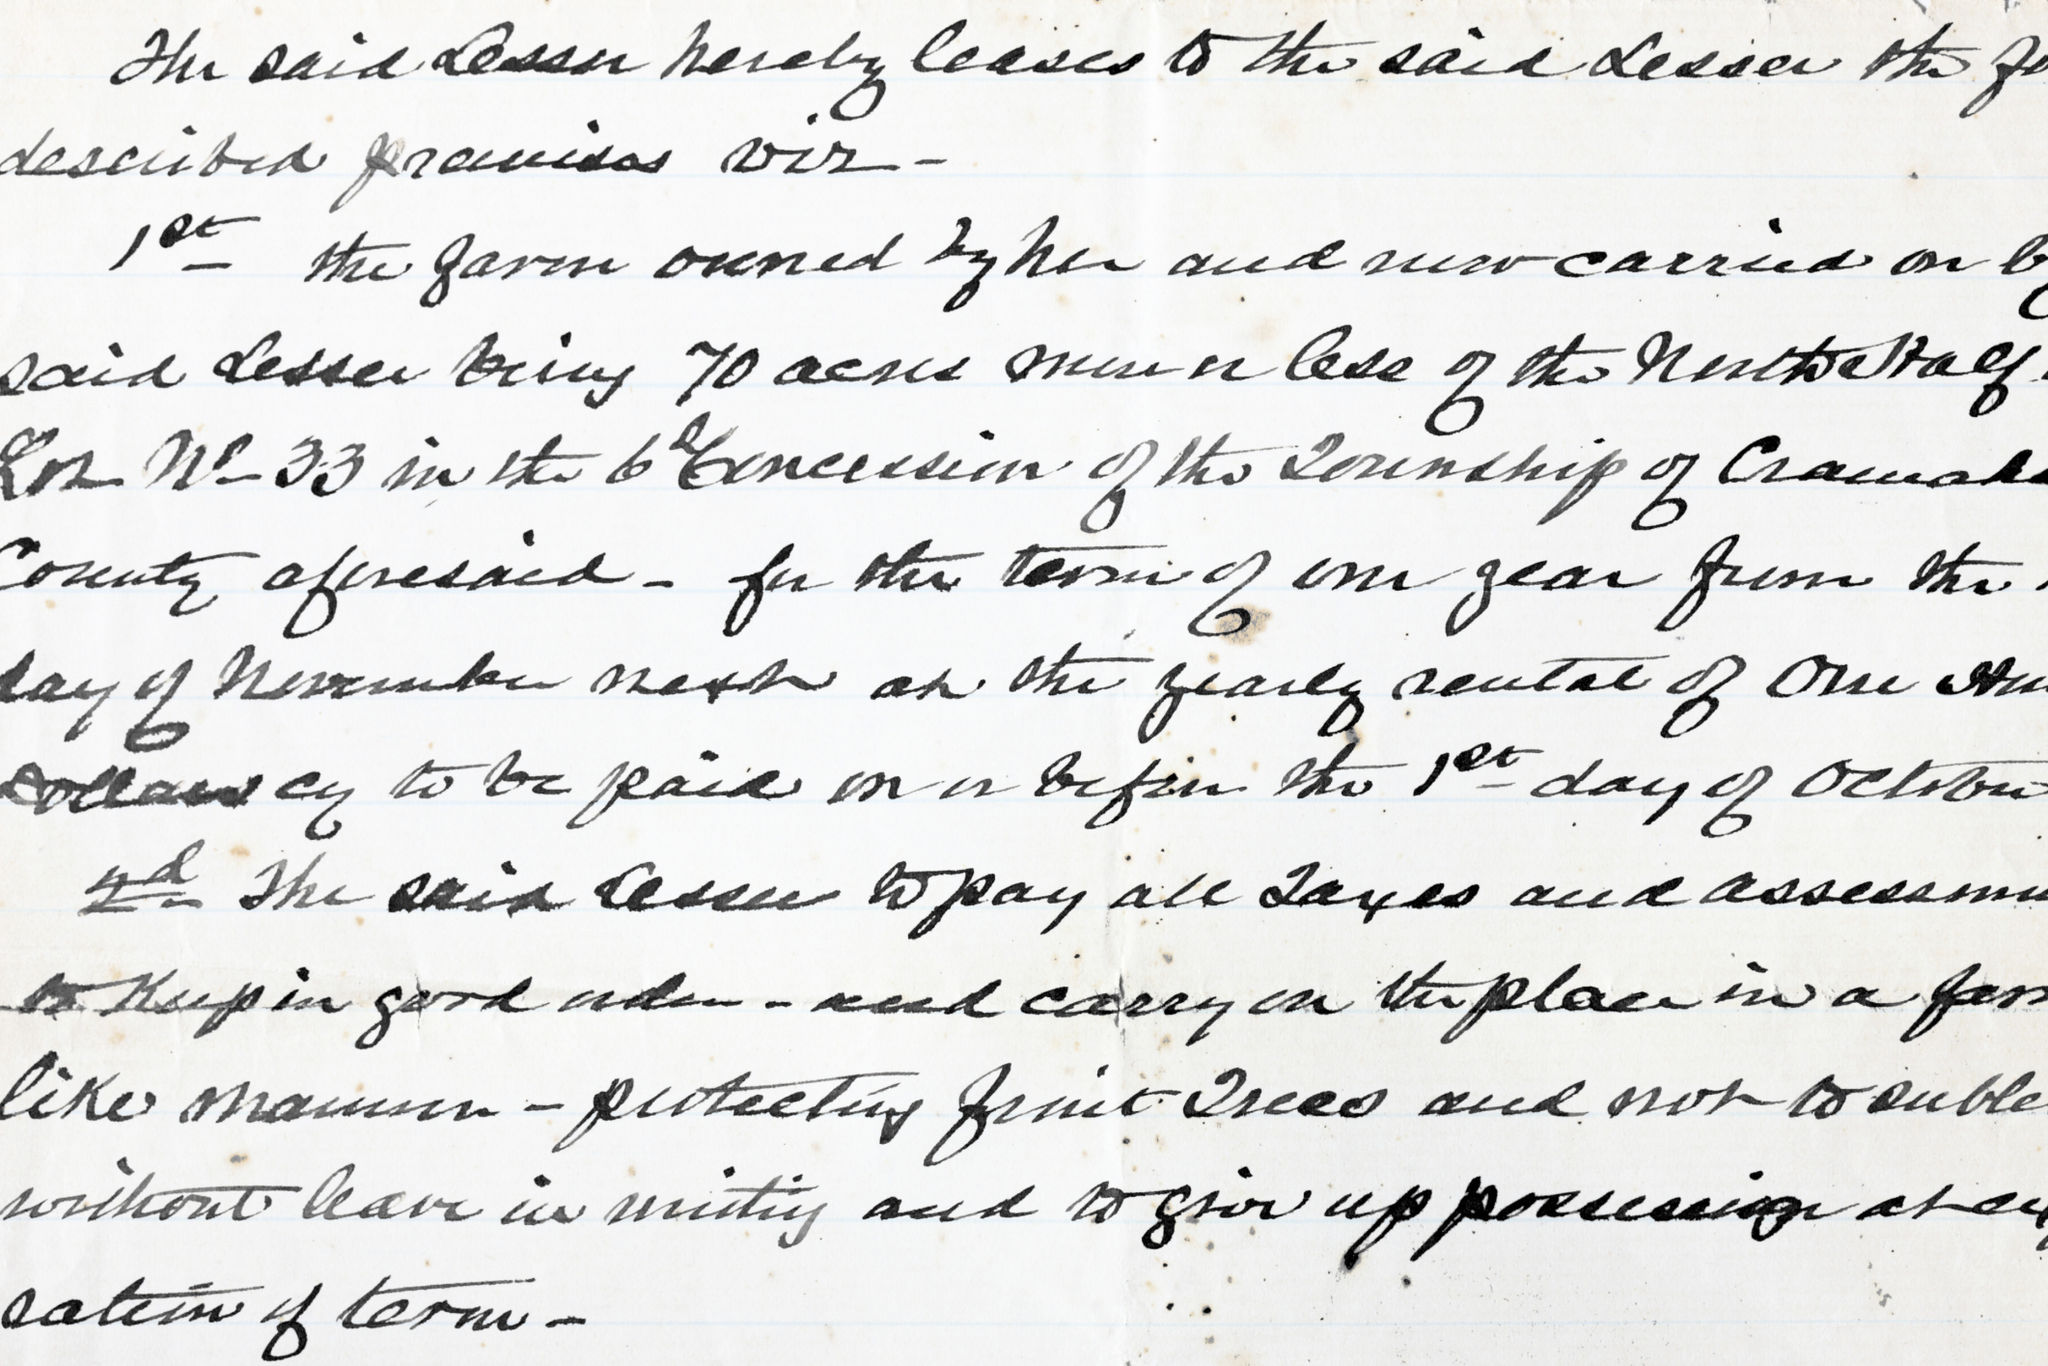 The said Lessor hereby leases to the said Lessee the
described premises viz -
1st the farm owned by her and now carried on by
said Lessee being 70 acres more or less of the North Half
Lot No 33 in the 6th Concession of the Township of Cramahe
County aforesaid - for the term of one year from the
day of November next at the yearly rental of One
dollars cy to be paid on or before the 1st day of October
2d The said Lessee to pay all Taxes and
to Keep in good order - and carry on the place in a
like manner - protecting fruit Trees and not to suble
without leave in writing and to give up possession at
ration of term -